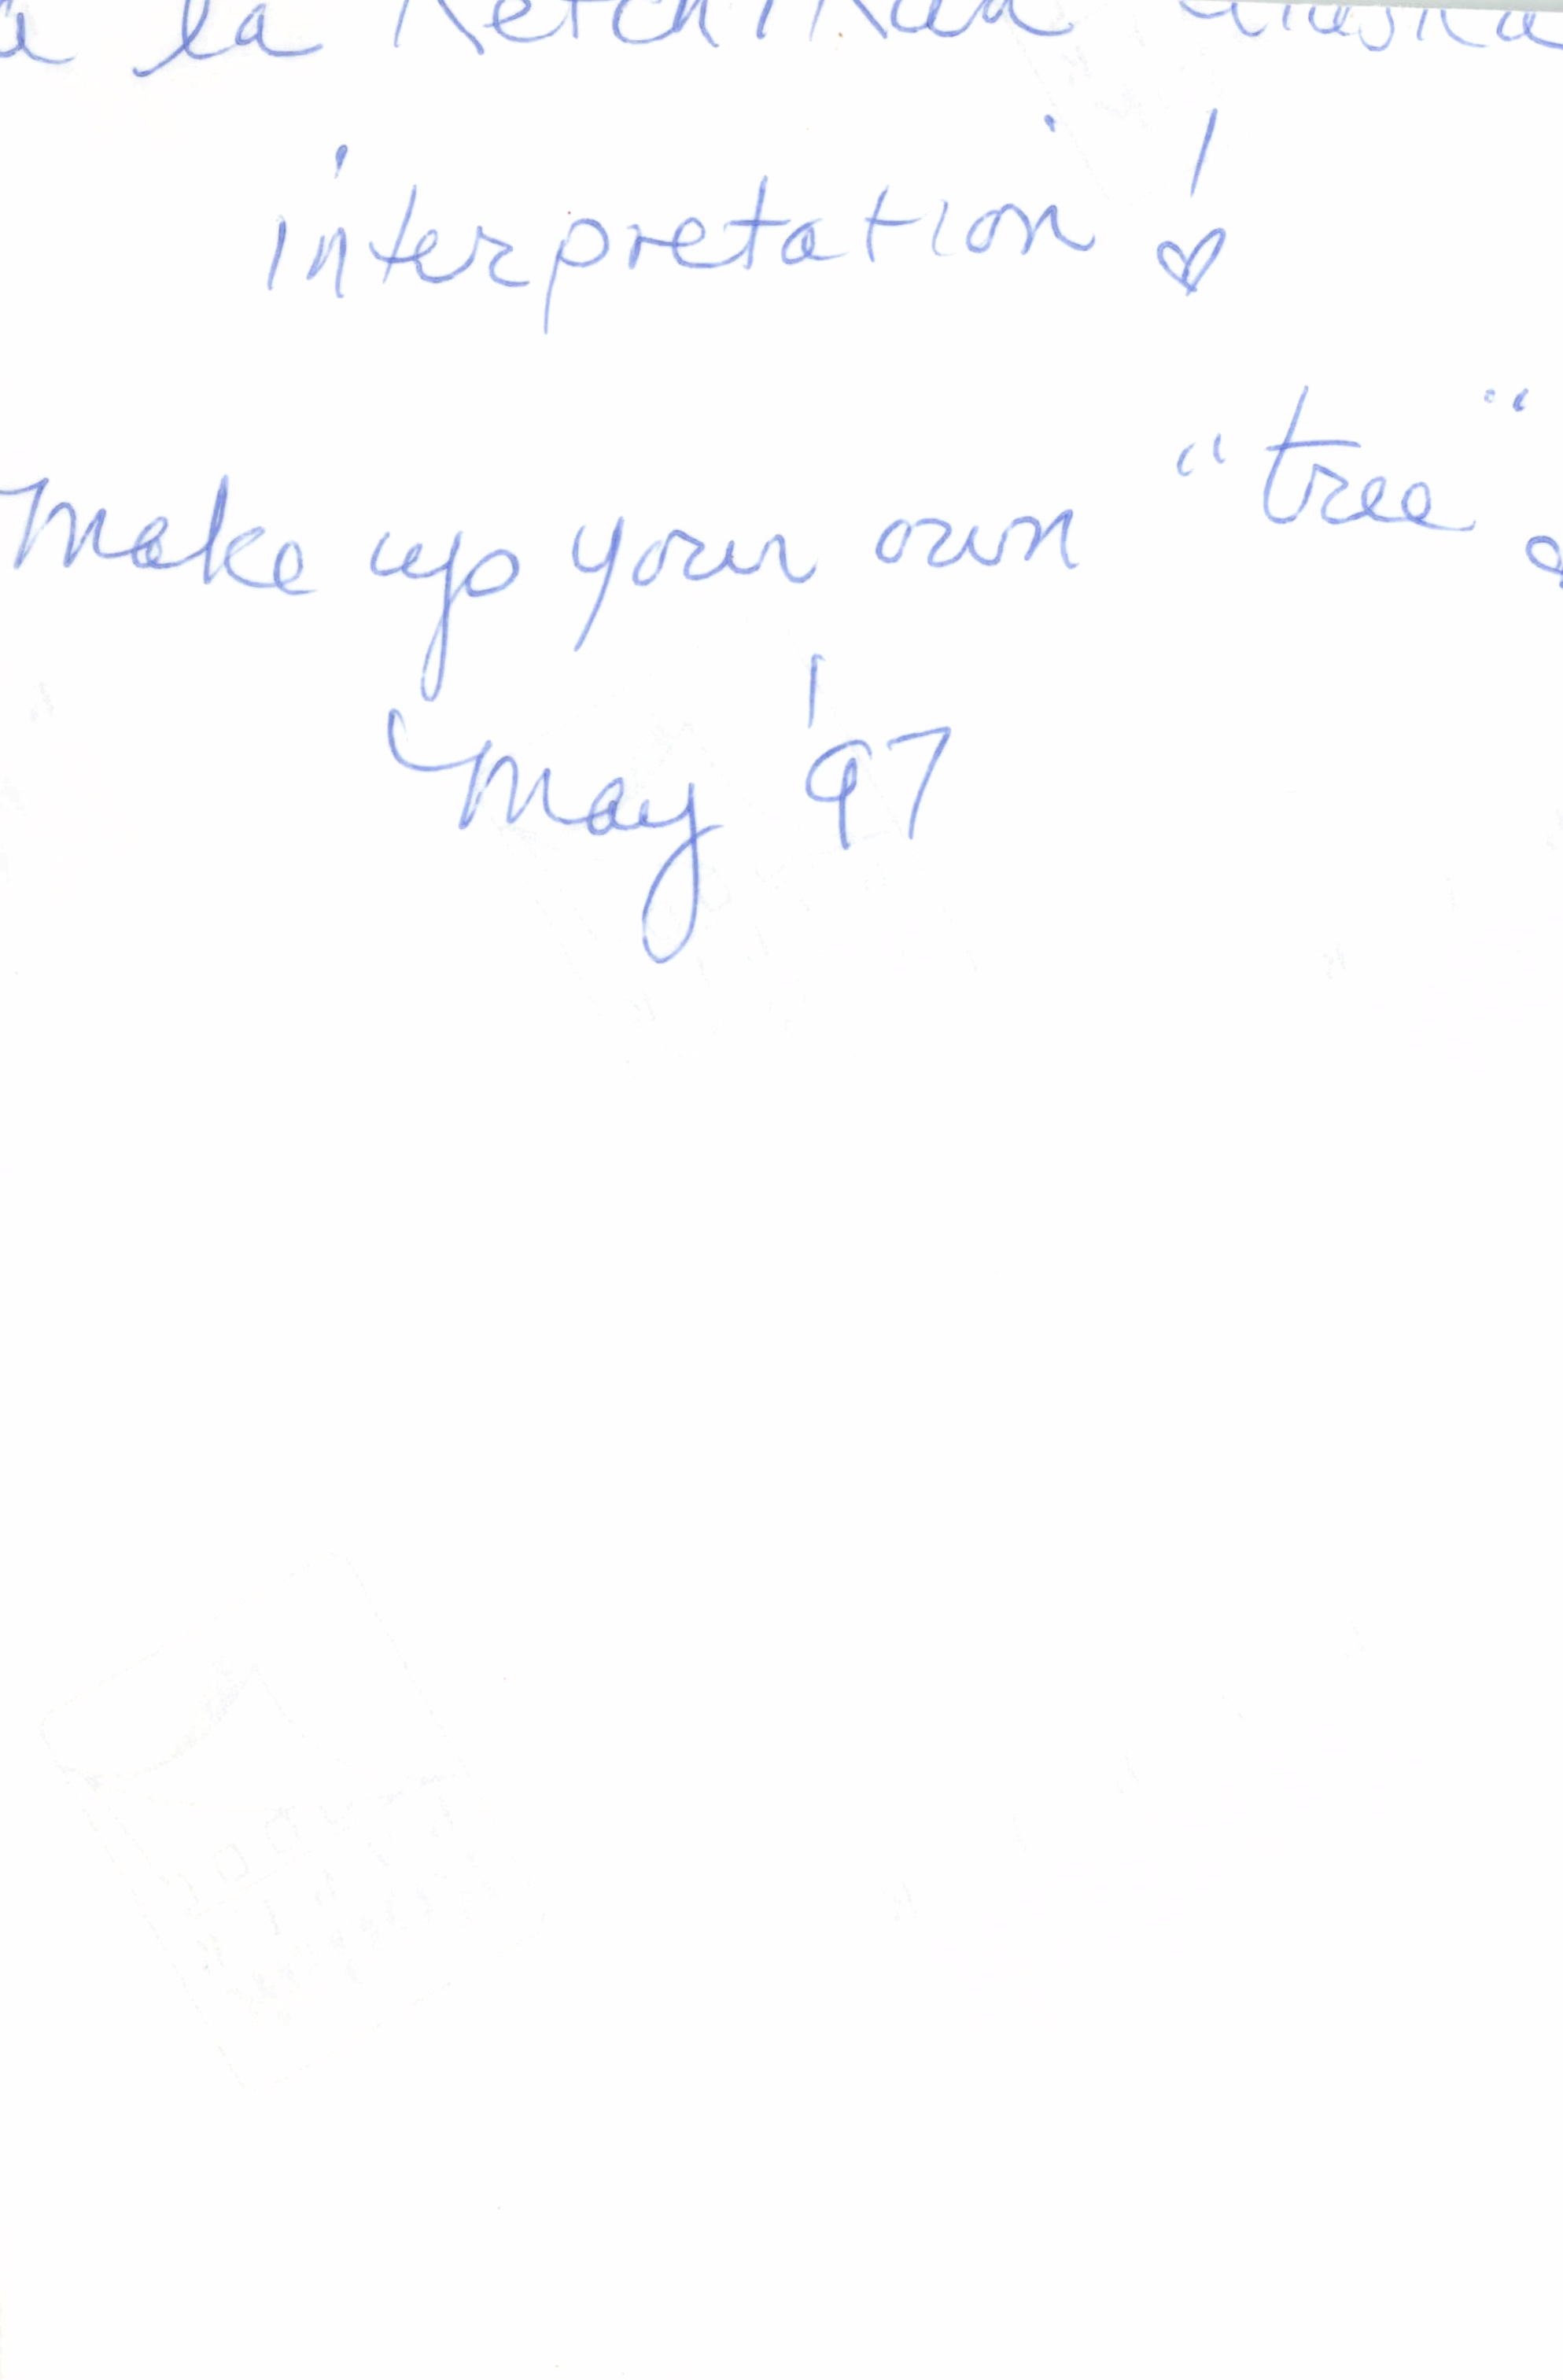 a la Ketchikan Alaska
interpretation!
Make up your own "tree"
May '97